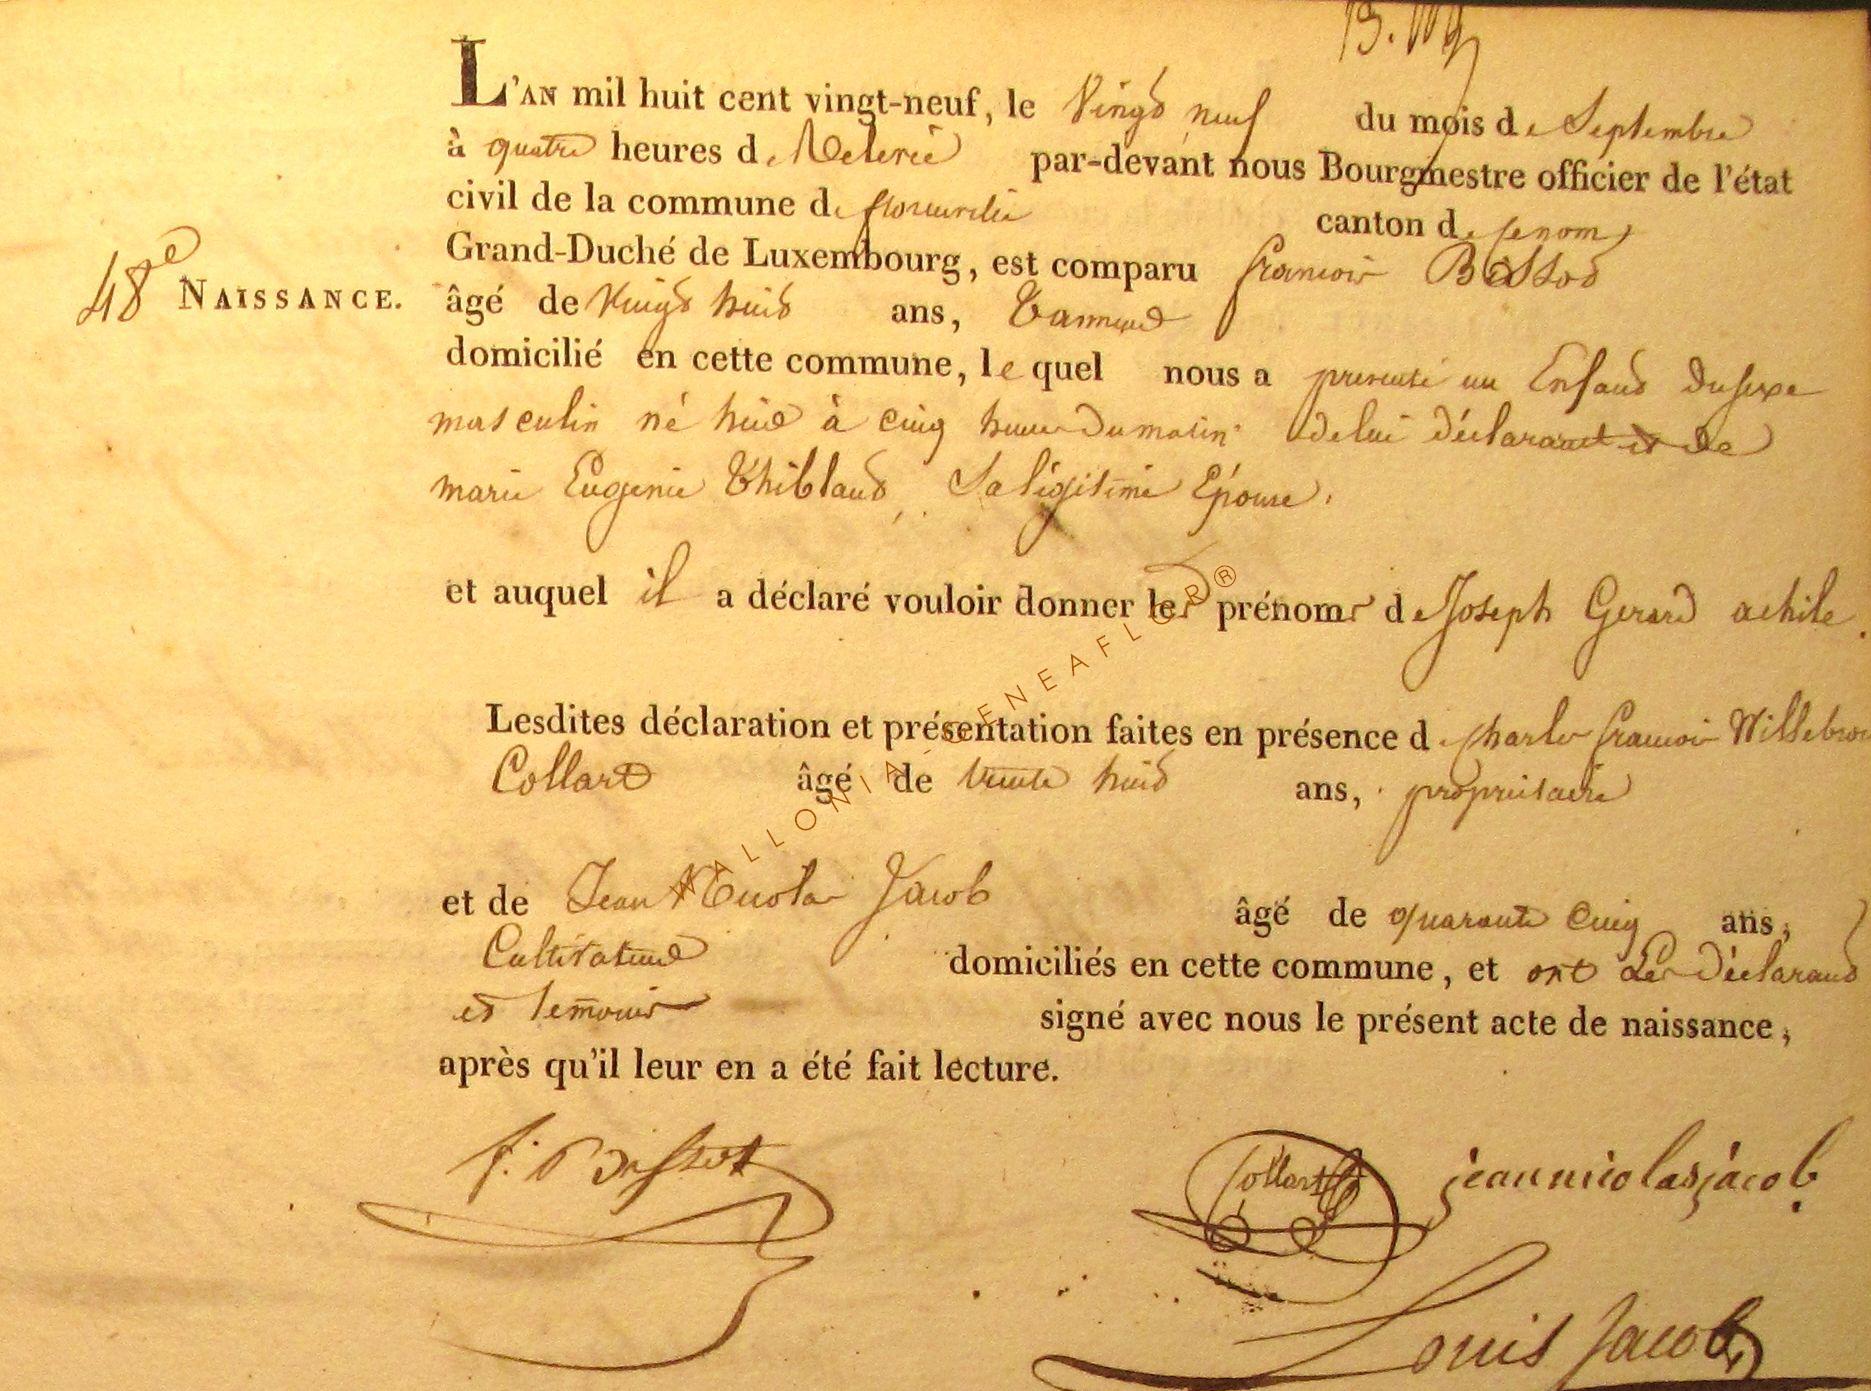 L'AN mil huit cent vingt-neuf, le Vingt neuf du mois de Septembre
à quatre heures de Relevée par-devant nous Bourgmestre officier de l'état
civil de la commune de florenville canton de
Grand-Duché de Luxembourg, est comparu francois
48e NAISSANCE.
âgé de Vingt huit ans, Tanneur
domicilié en cette commune, le quel nous a presenté un Enfant du sexe
masculin né hier à cinq heure du matin de lui déclarant et de
marie Eugenie Thiblaud, Sa légitime Epouse.
et auquel il a déclaré vouloir donner les prénoms de Joseph Gerard achile.
Lesdites déclaration et présentation faites en présence de charles francois Willebror
Collard âgé de trente huit ans, propriétaire
et de Jean Nicolas Jacob âgé de quarante cinq ans,
Cultivateur domiciliés en cette commune, et ont Les Déclarant
et temoins signé avec nous le présent acte de naissance,
après qu'il leur en a été fait lecture.
Collart jean nicolas jacob
Louis Jacob
WALLONIA GENEAFLOR ®